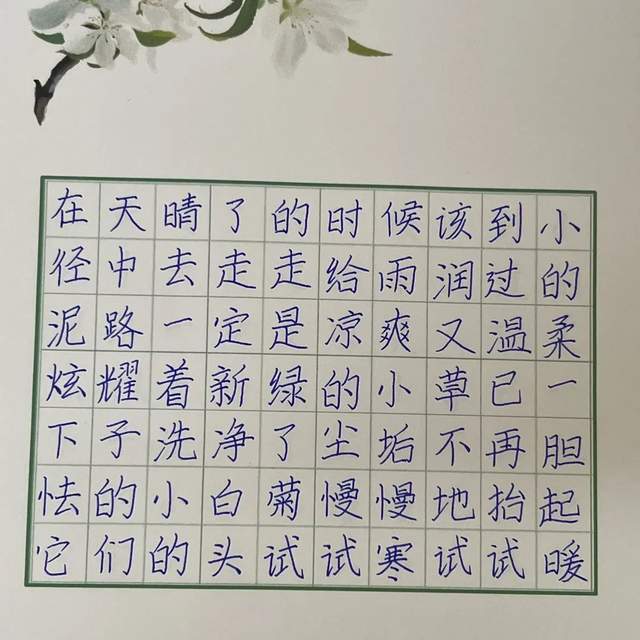 在天晴了的时候该到小
径中去走走给雨润过的
泥路一定是凉爽又温柔
炫耀着新绿的小草已一
下子洗净了尘垢不再胆
怯的小白菊慢慢地抬起
它们的头试试寒试试暖